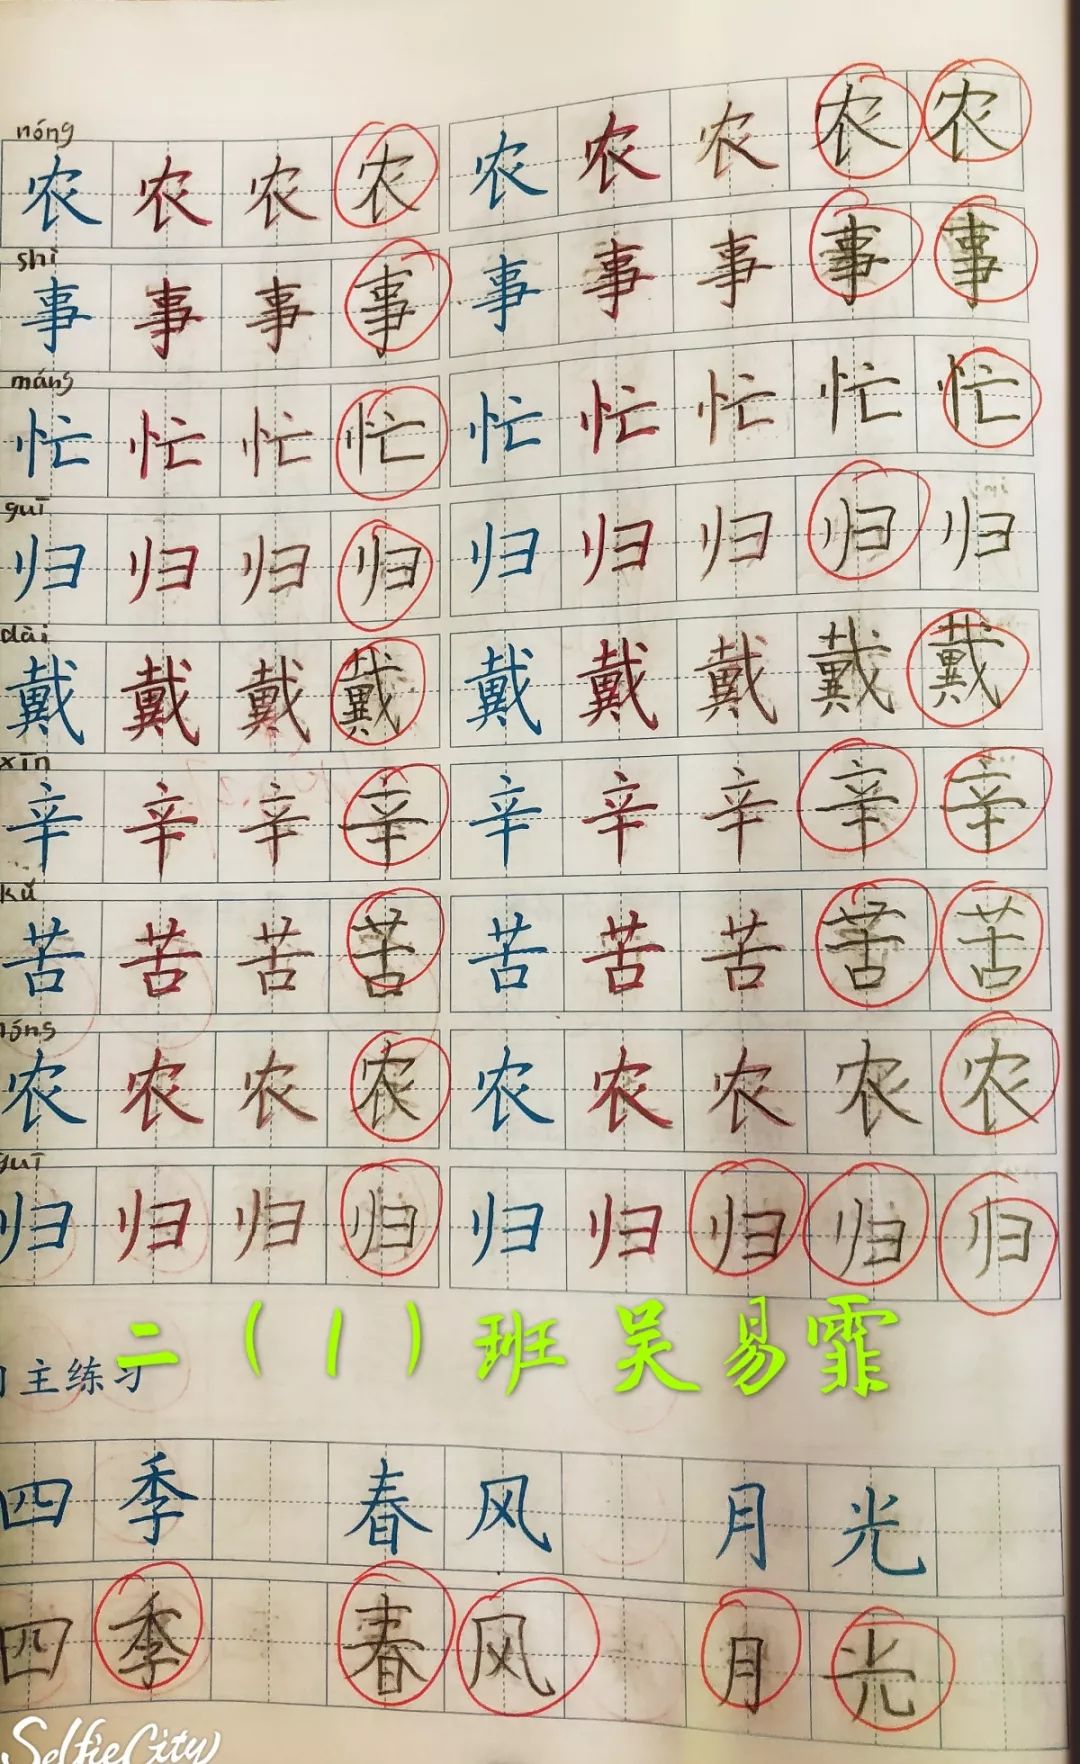 nóng
农 农 农 农 农 农 农 农 农
shì
事 事 事 事 事 事 事 事 事
máng
忙 忙 忙 忙 忙 忙 忙 忙 忙
guī
归 归 归 归 归 归 归 归 归
dài
戴 戴 戴 戴 戴 戴 戴 戴 戴
xīn
辛 辛 辛 辛 辛 辛 辛 辛 辛
kǔ
苦 苦 苦 苦 苦 苦 苦 苦 苦
nóng
农 农 农 农 农 农 农 农 农
guī
归 归 归 归 归 归 归 归 归
二（1）班 吴易霏
自主练习
四季 春风 月光
四季 春风 月光
SelfieCity